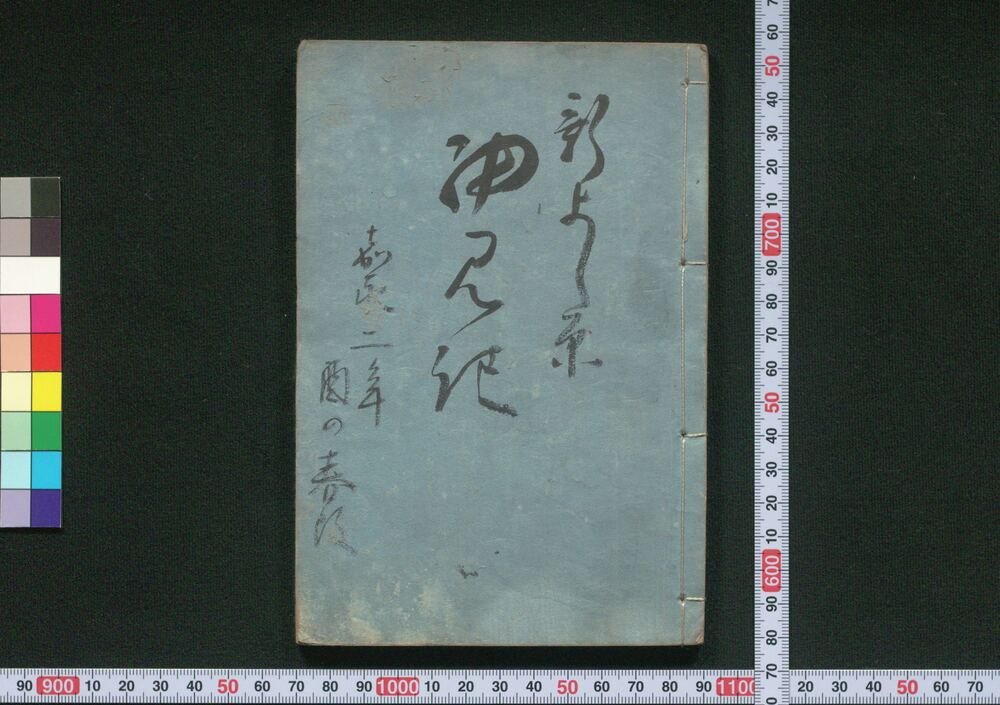 新よし原
細見記
嘉永二年
酉の春改
60 50 40 30 20 10 700 90 80 70 60 50 40 30 20 10 600 90 80 70
90 900 10 20 30 40 50 60 70 80 90 1000 10 20 30 40 50 60 70 80 90 1100 20 30 40 50 60 70